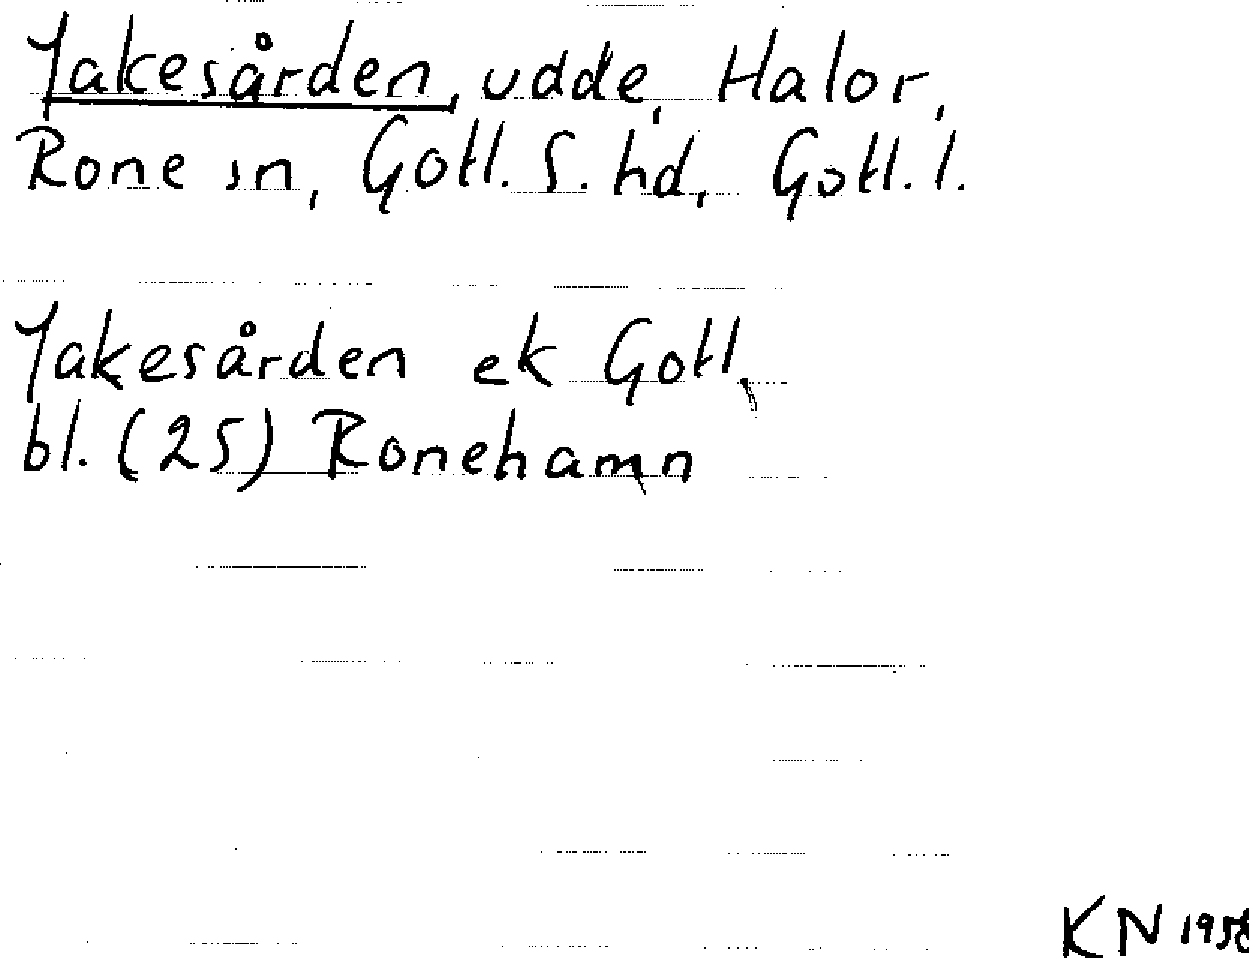 Jakesården, udde, Halor,
Rone sn, Gotl. S. hd, Gotl. l.
Jakesården ek Gotl.
bl. (25) Ronehamn
KN 1958